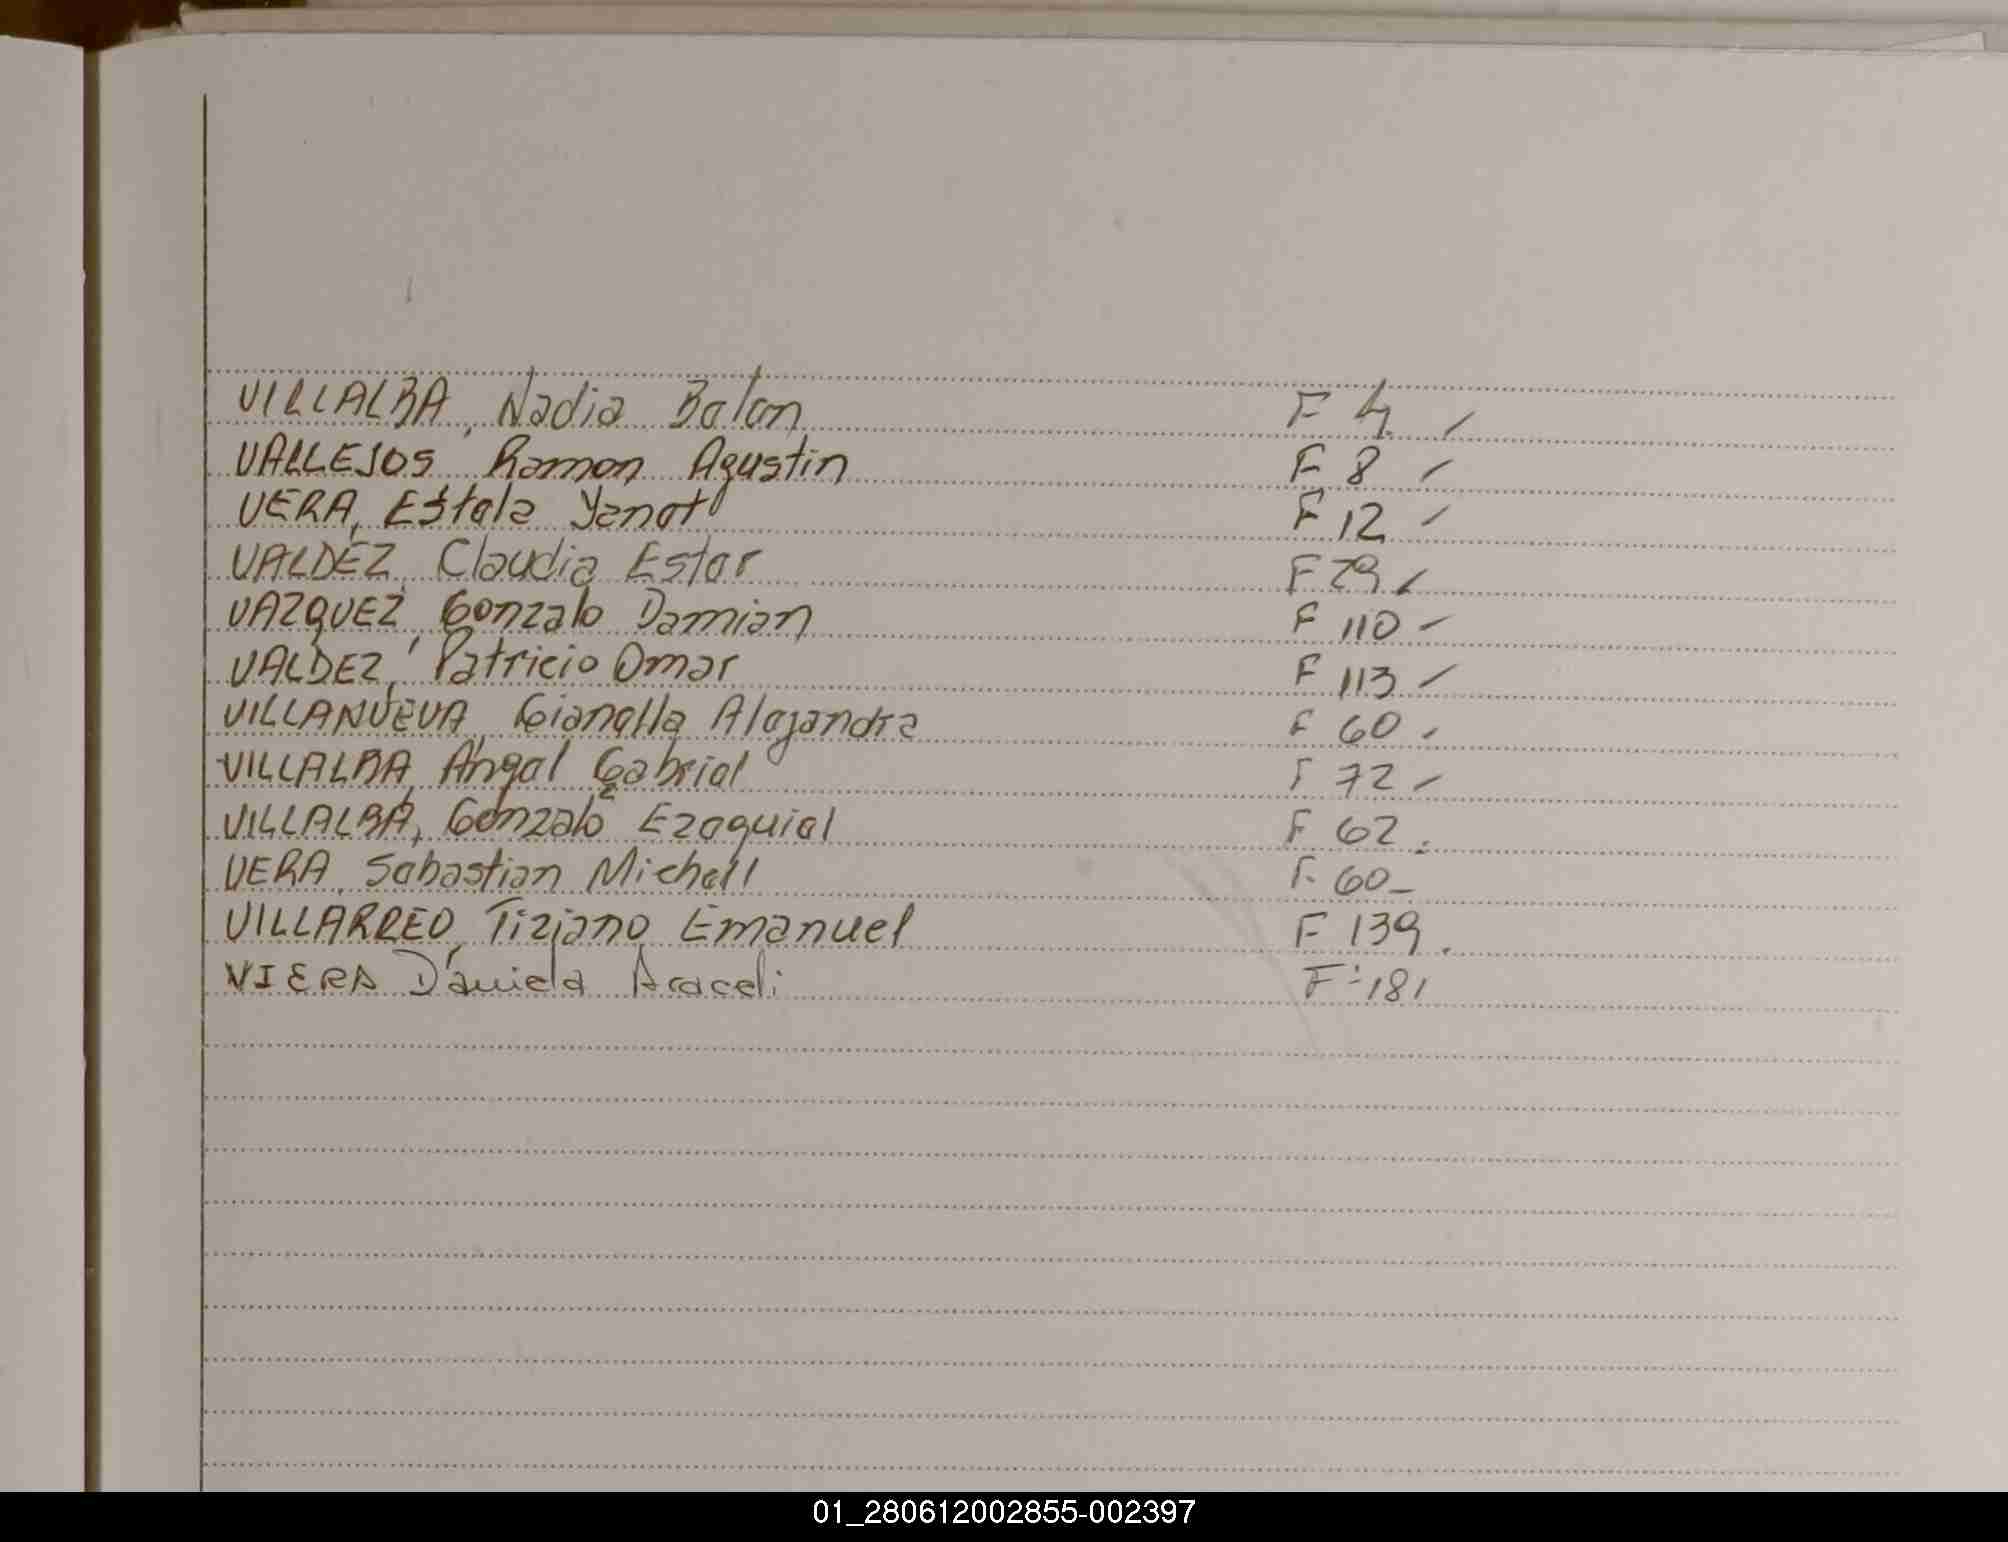 VILLALBA, Nadia Belen F 4
VALLEJOS Ramon Agustin F 8
VERA, Estela Yanet F 12
VALDEZ, Claudia Ester F 29
VAZQUEZ, Gonzalo Damian F 110
VALDEZ, Patricio Omar F 113
VILLANUEVA, Gianella Alejandra F 60
VILLALBA, Angel Gabriel F 72
VILLALBA, Gonzalo Ezequiel F 62
VERA, Sebastian Michell F 60
VILLARREO, Tiziano Emanuel F 139
VIERA Daniela Araceli F-181
01_280612002855-002397